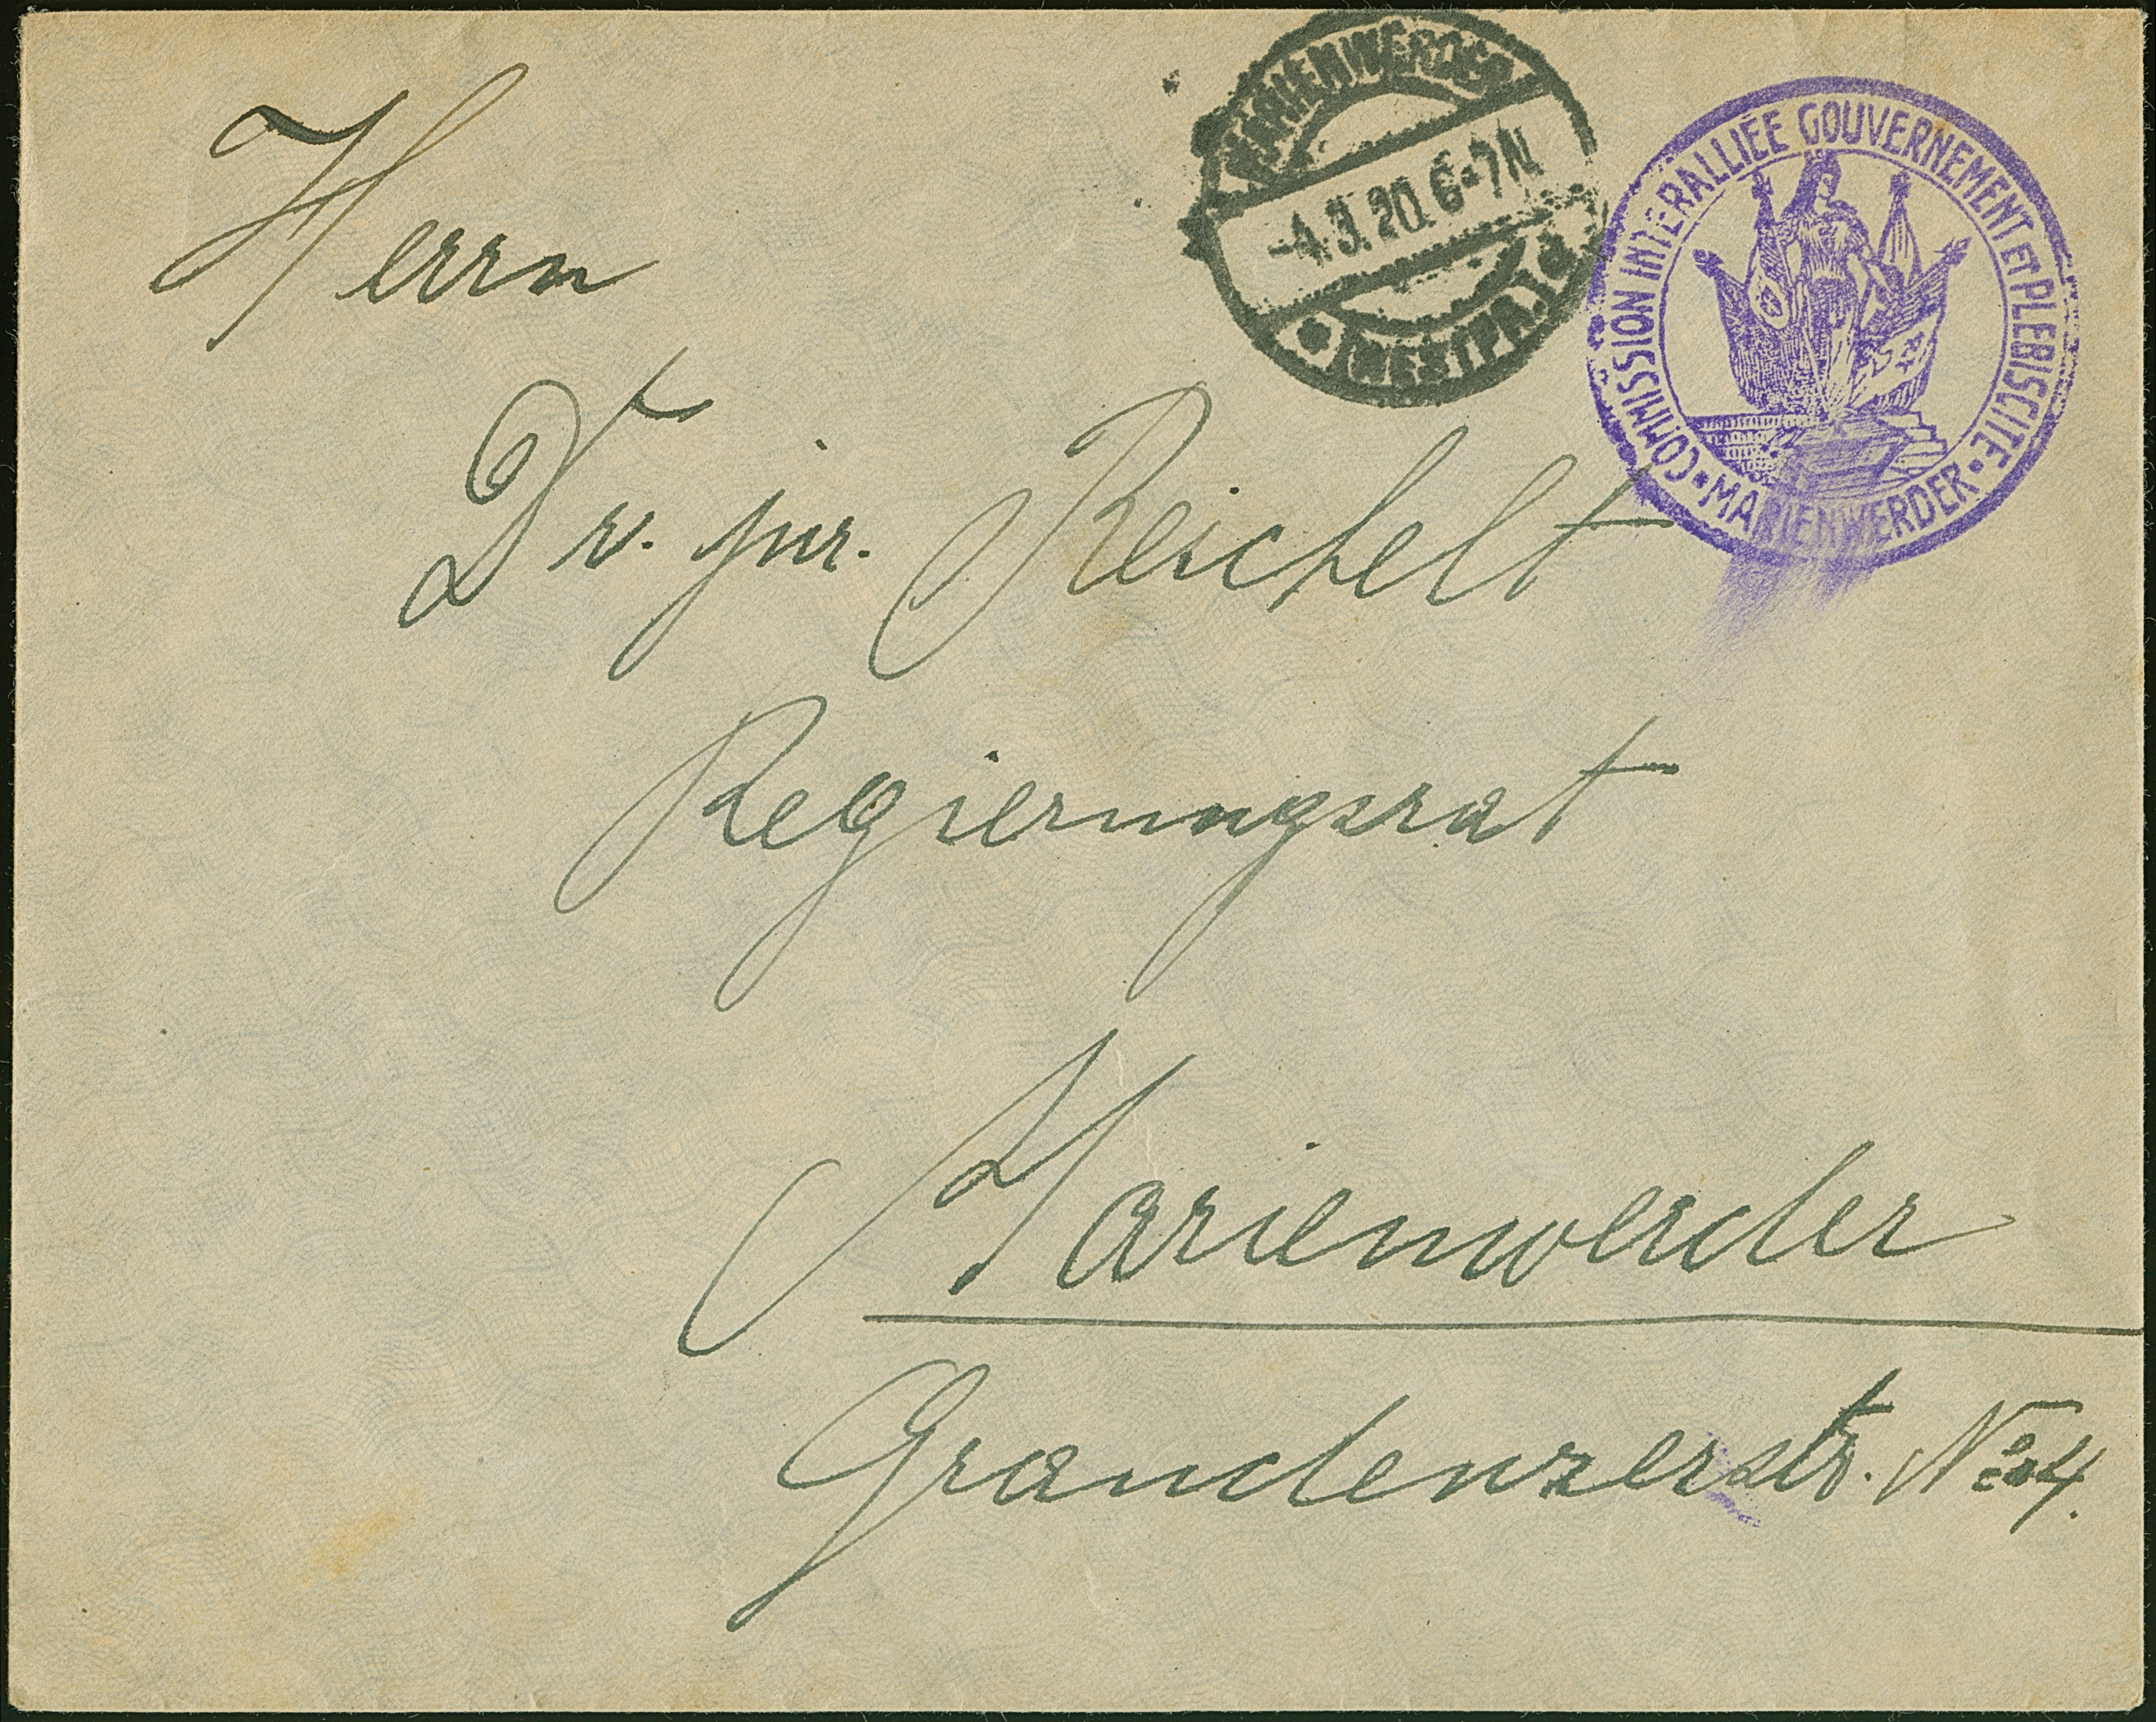 MARIENWERDER
-4.3.20.6-7N
* (WESTPR.) c
COMMISSION INTERALLIÉE GOUVERNEMENT ET PLEBISCITE
• MARIENWERDER •
Herrn
Dr. jur. Reichelt
Regierungsrat
Marienwerder
Graudenzerstr. No 4.